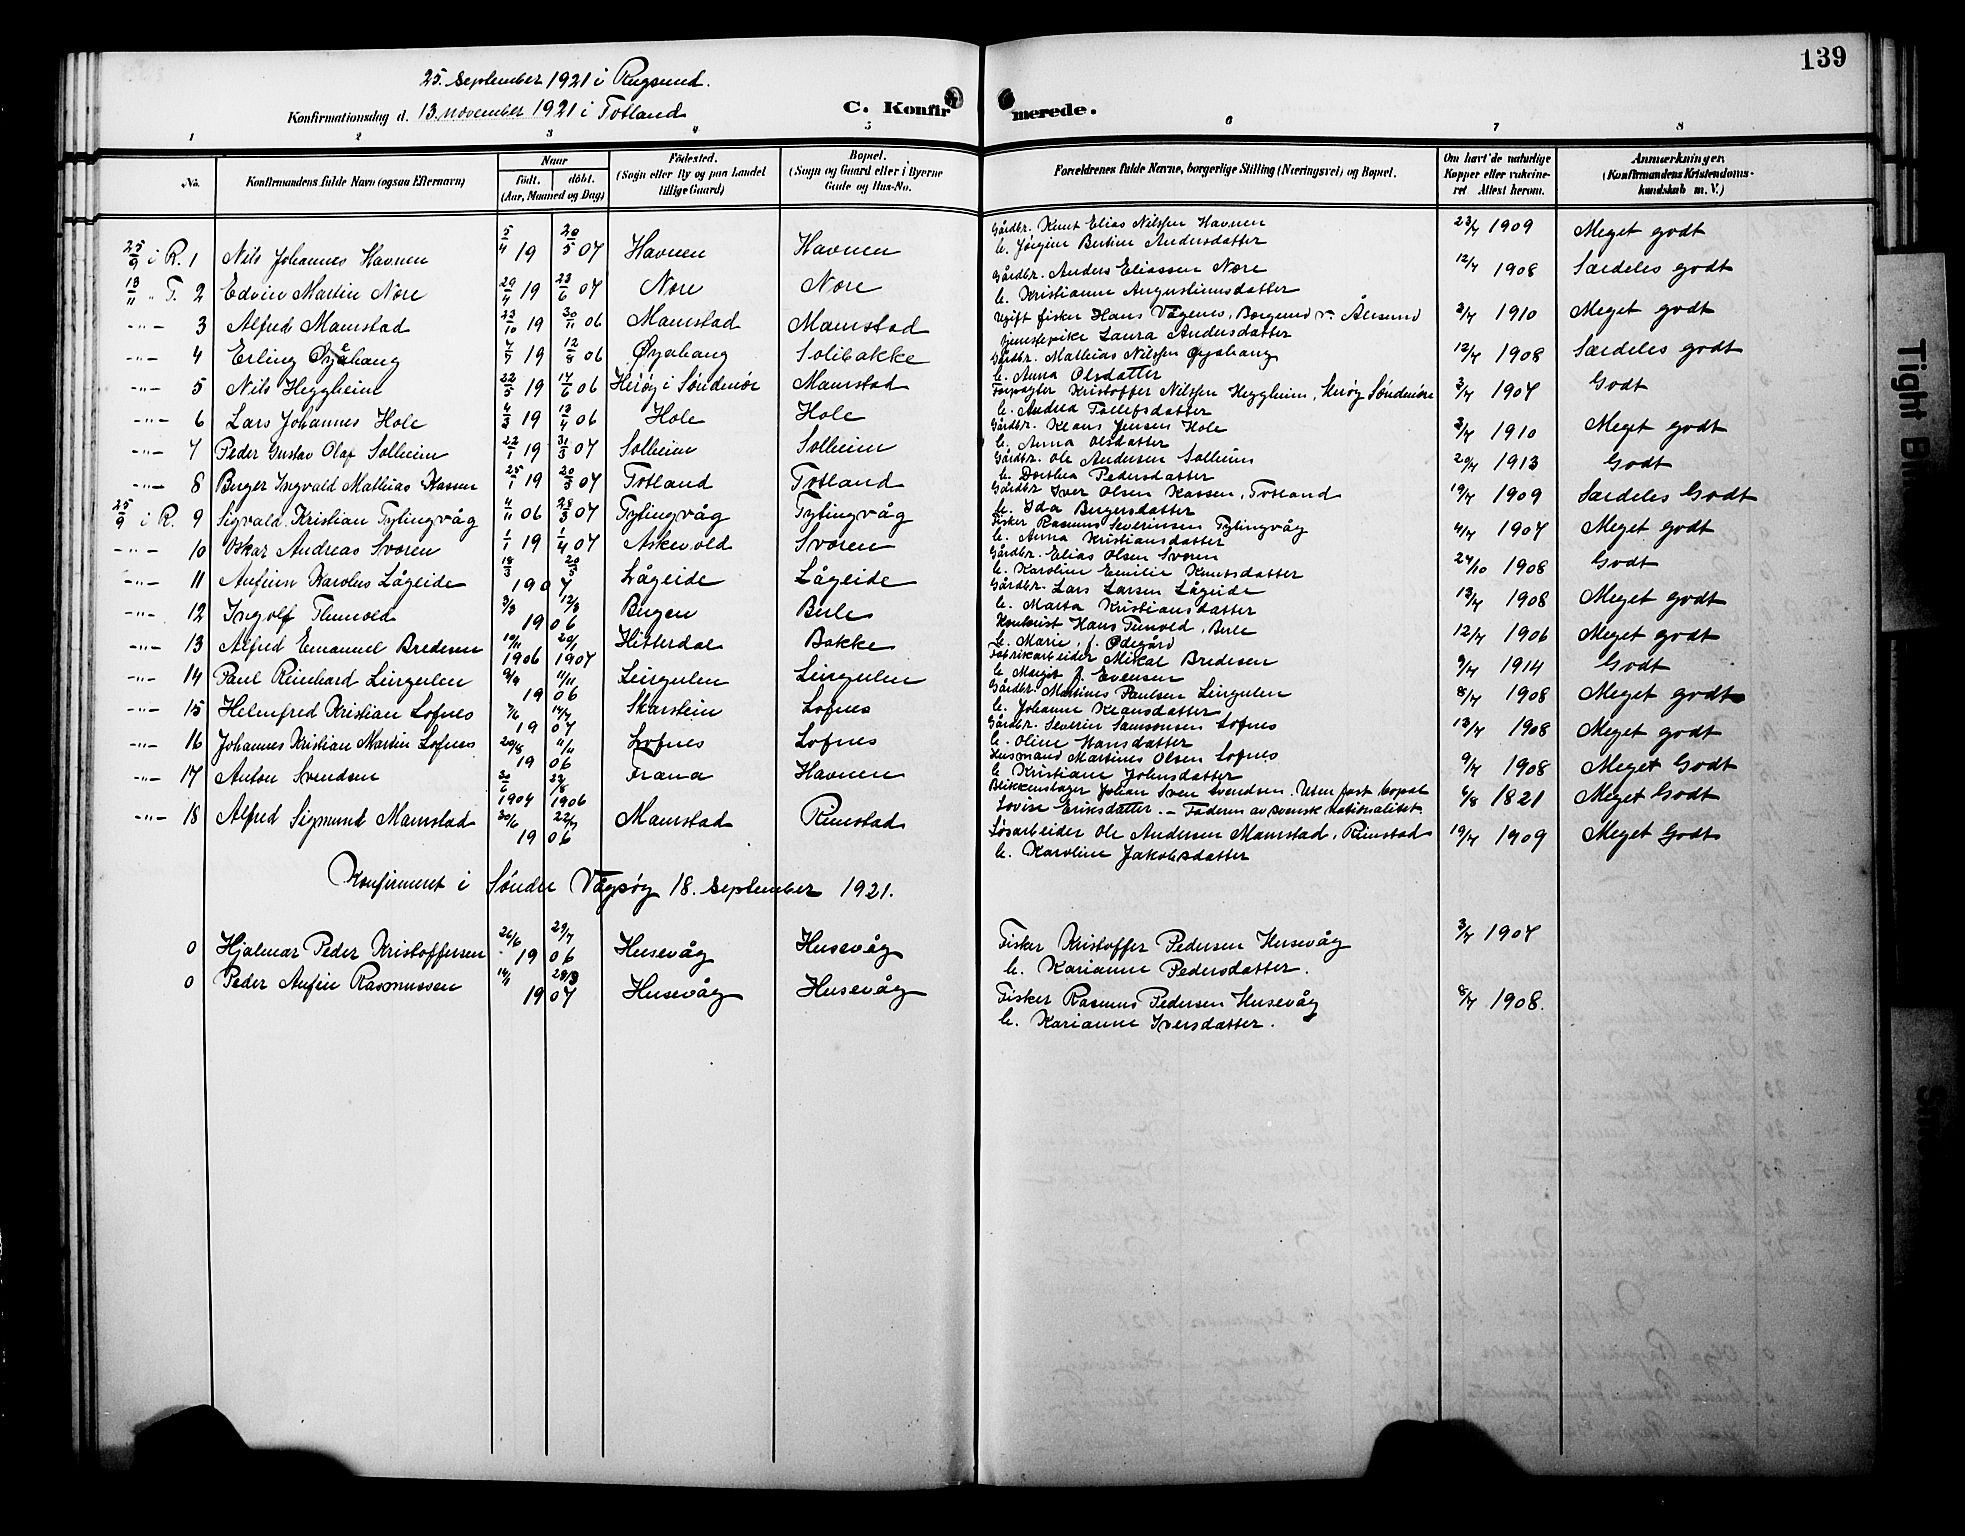 139
25. september 1921 i Rugsund.
Konfirmationsdag d. 13. november 1921 i Totland
C. Konfirmerede.
1 2 3 4 5 6 7 8
No. Konfirmandens fulde Navn (ogsaa Efternavn) Naar født. døbt. (Aar, Maaned og Dag) Fødested. (Sogn eller By og paa Landet tillige Gaard) Bopæl. (Sogn og Gaard eller i Byerne Gade og Hus-No. Forældrenes fulde Navne, borgerlige Stilling (Næringsvei) og Bopæl. Om havt de naturlige Kopper eller vakcineret Attest herom. Anmærkninger. (Konfirmandens Kristendomskundskab m. V.)
25/9 i R. 1 Nils Johannes Havnen 5/4 19 20/5 07 Havnen Havnen Gårdbr. Knut Elias Nilssen Havnen 23/7 1909 Meget godt
h. Jørgine Bertine Andersdatter
13/11 " T. 2 Edvin Martin Nore 29/4 19 23/6 07 Nore Nore Gårdbr. Anders Eliassen Nore 12/7 1908 Særdeles godt
h. Kristianne Augustinusdatter
-"- 3 Alfred Mamstad 23/10 19 30/11 06 Mamstad Mamstad Ugift fisker Hans Vågenes, Borgund v. Ålesund 2/7 1910 Meget godt
tjenestepike Laura Andersdatter
-"- 4 Erling Øyahang 4/7 19 12/8 06 Øyahang Solibakke Gårdbr. Mathias Nilssen Øyahang 12/7 1908 Særdeles godt
h. Anna Olsdatter
-"- 5 Nils Heggheim 22/5 19 17/6 06 Herøy i Søndmør Mamstad Forpagter Kristoffer Nilssen Heggheim, Herøy Søndmøre 3/7 1907 Godt
h. Andrea Tollefsdatter
-"- 6 Lars Johannes Hole 4/3 19 13/4 06 Hole Hole Gårdbr. Klaus Jensen Hole 2/7 1910 Meget godt
h. Anna Olsdatter
-"- 7 Peder Gustav Olaf Solheim 22/1 19 31/3 07 Solheim Solheim Gårdbr. Ole Andersen Solheim 20/7 1913 Godt
h. Dorthea Pedersdatter
-"- 8 Berger Ingvald Mathias Hassen 25/1 19 20/3 07 Totland Totland Gårdbr. Iver Olsen Hassen, Totland 19/7 1909 Særdeles Godt
h. Ida Bergersdatter
25/9 i R. 9 Sigvald Kristian Tytingvåg 4/11 06 28/3 07 Tytingvåg Tytingvåg Fisker Rasmus Severinsen Tytingvåg 4/7 1907 Meget godt
h. Anna Kristiansdatter
-"- 10 Oskar Andreas Svoren 1/1 19 1/4 07 Askevold Svoren Gårdbr. Elias Olsen Svoren 24/10 1908 Godt
h. Karoline Emilie Knutsdatter
-"- 11 Anfinn Karolus Lågeide 18/3 20/5 1907 Lågeide Lågeide Gårdbr. Lars Larsen Lågeide 13/7 1908 Meget godt
h. Marta Kristiansdatter
-"- 12 Ingolf Thunold 3/3 12/8 1906 Bergen Berle Kontorist Hans Tunold, Berle 12/7 1906 Meget godt
h. Marie, f. Ødegård
-"- 13 Alfred Emanuel Bredesen 19/11 1906 20/1 1907 Hitterdal Bakke Fabrikarbeider Mikal Bredesen 9/7 1914 Godt
h. Margit f. Evensen
-"- 14 Paul Reinhard Leirgulen 9/9 11/11 1906 Leirgulen Leirgulen Gårdbr. Martines Paulsen Leirgulen 8/7 1908 Meget godt
h. Johanne Klausdatter
-"- 15 Helmfred Kristian Lofnes 7/6 14/7 1907 Skarstein Lofnes Gårdbr. Severin Samsonsen Lofnes 13/7 1908 Meget godt
h. Oline Hansdatter
-"- 16 Johannes Kristian Martin Lofnes 20/8 11/11 1906 Lofnes Lofnes Husmand Martines Olsen Lofnes 9/7 1908 Meget Godt
h. Kristiane Johnsdatter
-"- 17 Anton Svendsen 1904 1906 Frana Havnen Blikkenslager Johan Sven Svendsen. Uten fast bopæl 6/8 1821 Meget Godt
Lovise Eriksdatter. - Faderen av svensk nationalitet.
-"- 18 Alfred Sigmund Mamstad 30/6 22/7 1906 Mamstad Rimstad Løsarbeider Ole Andersen Mamstad, Rimstad 19/7 1909 Meget Godt
h. Karoline Jakobsdatter
Konfirmeret i Søndre Vågsøy 18. september 1921.
0 Hjalmar Peder Kristoffersen 26/6 29/7 1906 Husevåg Husevåg Fisker Kristoffer Pedersen Husevåg 3/7 1907
h. Karianne Pedersdatter.
0 Peder Anfin Rasmussen 14/1 29/3 1907 Husevåg Husevåg Fisker Rasmus Pedersen Husevåg 8/7 1908.
h. Karianne Iversdatter.
Tight Bin